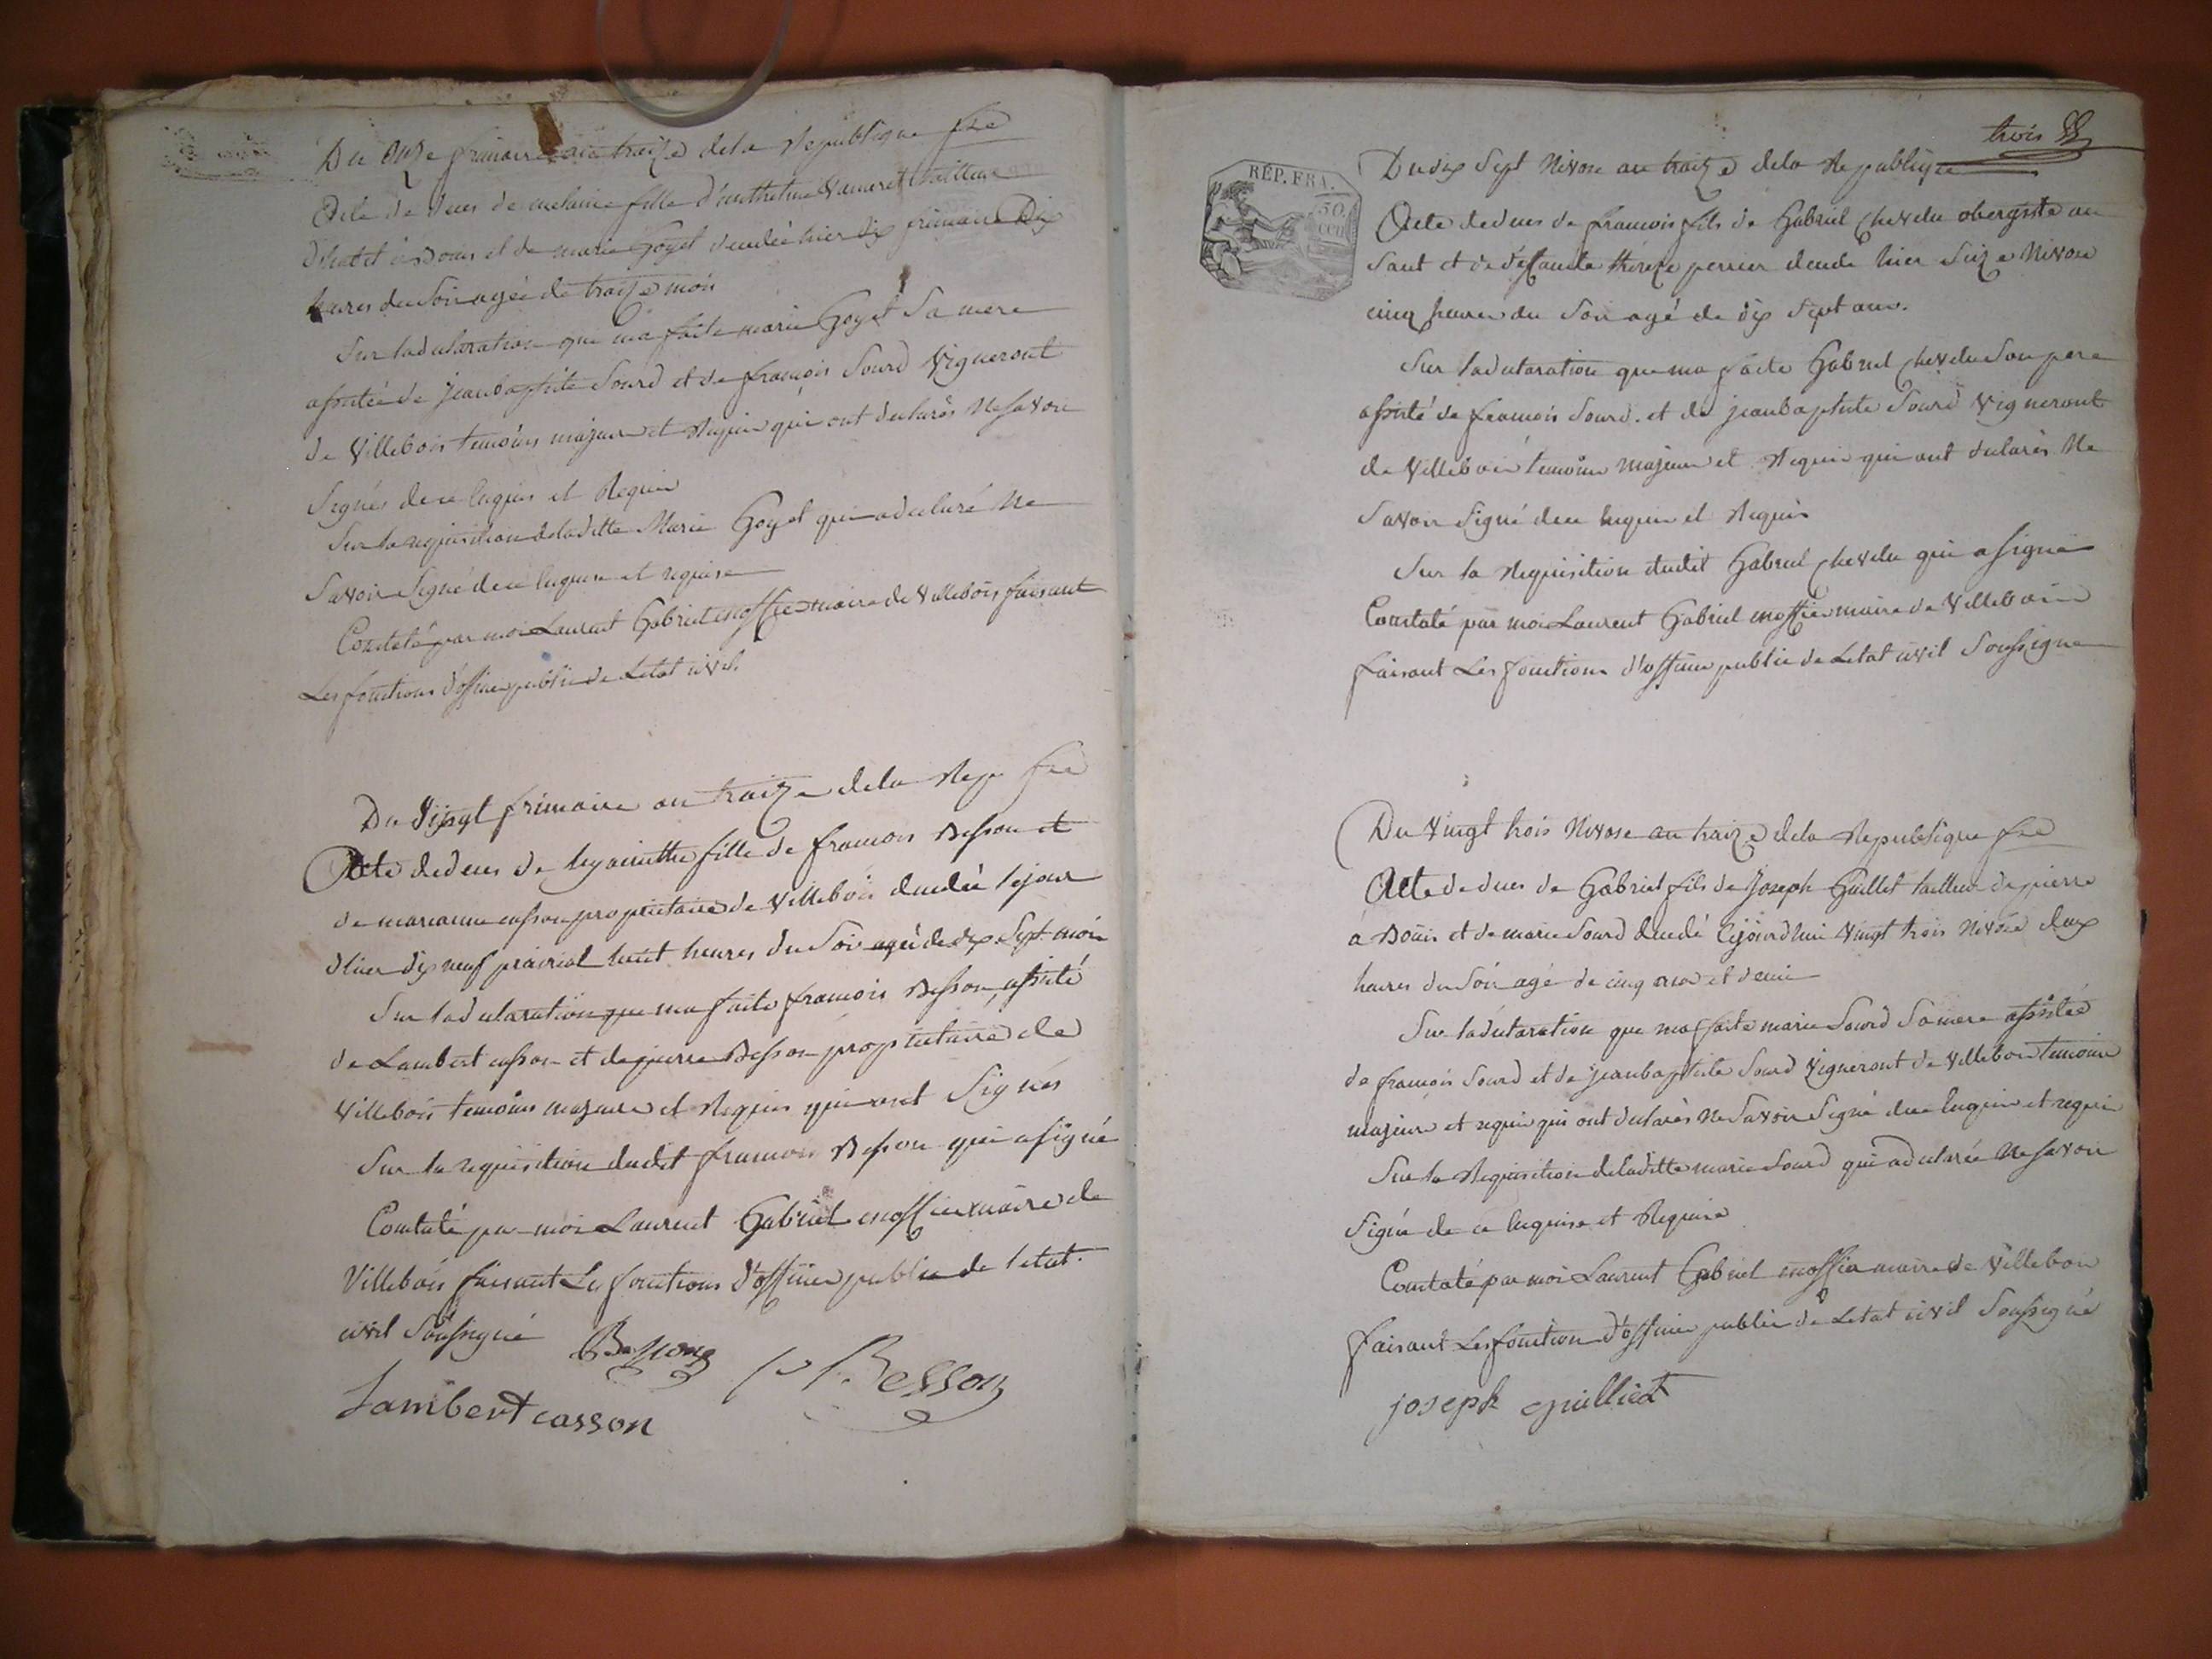 Du onze frimaire an traize dela Republique fse
Acte de deces de melanie fille d'anthelme
et de marie Goyet decedée hier dix frimaire Dix
heures du Soir agée de traize mois
Sur ladeclaration que ma faite marie Goyet Sa mere
assistée de jeanbaptiste Sourd et de françois Sourd Vigneront
de Villebois temoins majeurs et Requis qui ont declarés Ne savoir
Signés de ce Enquis et Requis
Sur la requisition deladitte Marie Goyet qui a declaré Ne
Savoir Signé de ce Enquise et requise
Constaté par moi Laurent Gabriel maire de Villebois faisant
Les fonctions d'officier public de Letat civil
Du Vingt frimaire an traize dela Rep fse
Acte de deces de hyacinthe fille de francois Besson et
de marianne casson proprietaire de Villebois decedée lejour
d'hier dix neuf prairial huit heures du Soir agée de dix Sept mois
Sur ladeclaration que ma faite francois Besson, assisté
de Lambert casson et de pierre Besson proprietaire de
Villebois temoins majeurs et Requis qui ont Signés
Sur la requisition dudit francois Besson qui a signé
Constaté par moi Laurent Gabriel maire de
Villebois faisant Les fonctions d'officier public de letat
civil Soussigné Besson p Besson
Lambert casson
trois
RÉP. FRA.
50
cen
Du dix Sept Nivose an traize dela Republique
Acte de deces de francois fils de Gabriel Chevelu obergiste au
Saut et de déffaunte thérèze perrier decede hier Seize Nivose
cinq heures du Soir agé de dix Sept ans.
Sur ladeclaration que ma faite Gabriel Chevelu Son pere
assisté de francois Sourd. et de jeanbaptiste Sourd Vigneront
de Villebois temoins majeurs et Requis qui ont declarés Ne
Savoir Signé de ce Enquis et Requis
Sur la Requisition dudit Gabriel Chevelu qui a signé
Constaté par moi Laurent Gabriel maire de Villebois
faisant Les fonctions d'officier public de Letat civil Soussigné
Du Vingt trois Nivose an traize dela Republique fse
Acte de deces de Gabriel fils de Joseph Guillet tailleur de pierre
à Bouis et de marie Sourd decedé Cejourd'hui Vingt trois Nivose deux
heures du Soir agé de cinq ans et demi
Sur ladeclaration que ma faite marie Sourd Sa mere assistée
de françois Sourd et de jeanbaptiste Sourd Vigneront de Villebois temoins
majeurs et requis qui ont declarés Ne Savoir Signé de ce Enquis et requis
Sur la Requisition deladitte marie Sourd qui a declarée Ne Savoir
Signée de ce Enquise et Requise
Constaté par moi Laurent Gabriel maire de Villebois
faisant Les fonction d'officier public de Letat civil Soussigné
joseph guilliet